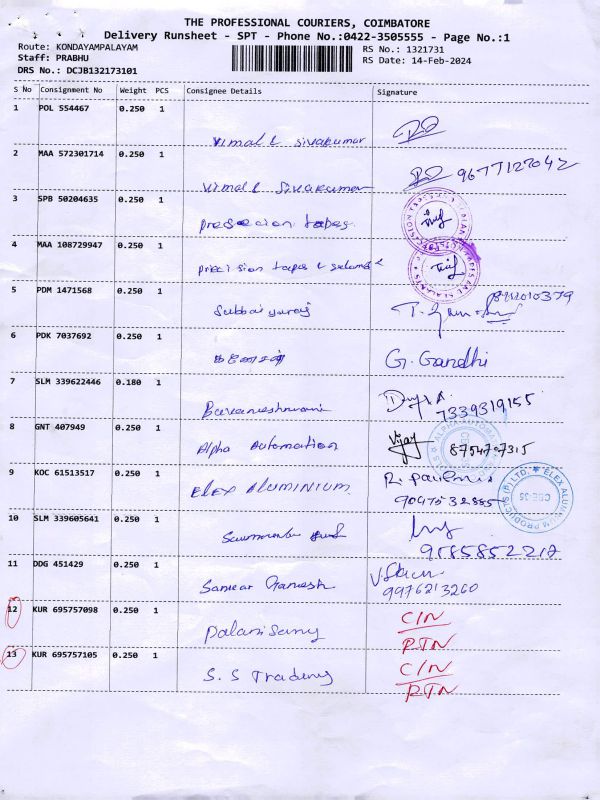 THE PROFESSIONAL COURIERS, COIMBATORE
Delivery Runsheet - SPT - Phone No.:0422-3505555 - Page No.:1
Route: KONDAYAMPALAYAM RS No.: 1321731
Staff: PRABHU RS Date: 14-Feb-2024
DRS No.: DCJB132173101
S No Consignment No Weight PCS Consignee Details Signature
1 POL 554467 0.250 1
Vimal L Sivakumar
2 MAA 572301714 0.250 1
Vimal L Sivakumar
3 SPB 50204635 0.250 1
tapes
4 MAA 108729947 0.250 1
precision tapes &
5 PDM 1471568 0.250 1
6 PDK 7037692 0.250 1
G. Gandhi
7 SLM 339622446 0.180 1
7339319155
8 GNT 407949 0.250 1
Alpha Automation Vijay 8754727315
9 KOC 61513517 0.250 1
ELEX ALUMINIUM
10 SLM 339605641 0.250 1
11 DDG 451429 0.250 1
Ganesh
9976213260
12 KUR 695757098 0.250 1
Palanisamy C/N
RTN
13 KUR 695757105 0.250 1
S. S Trading C/N
RTN